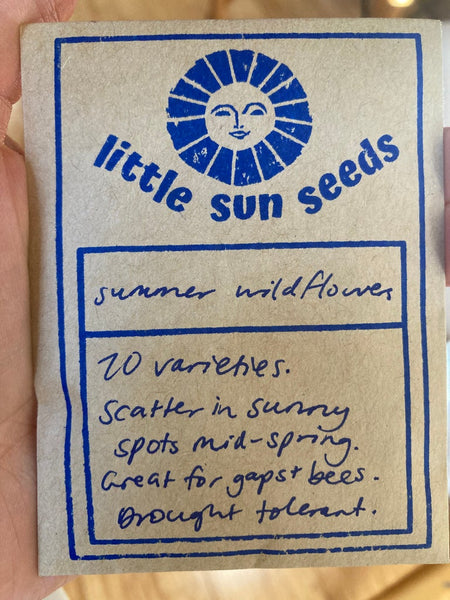 little sun seeds
summer wildflowers
20 varieties.
Scatter in sunny
spots mid-spring.
Great for gaps + bees.
Drought tolerant.